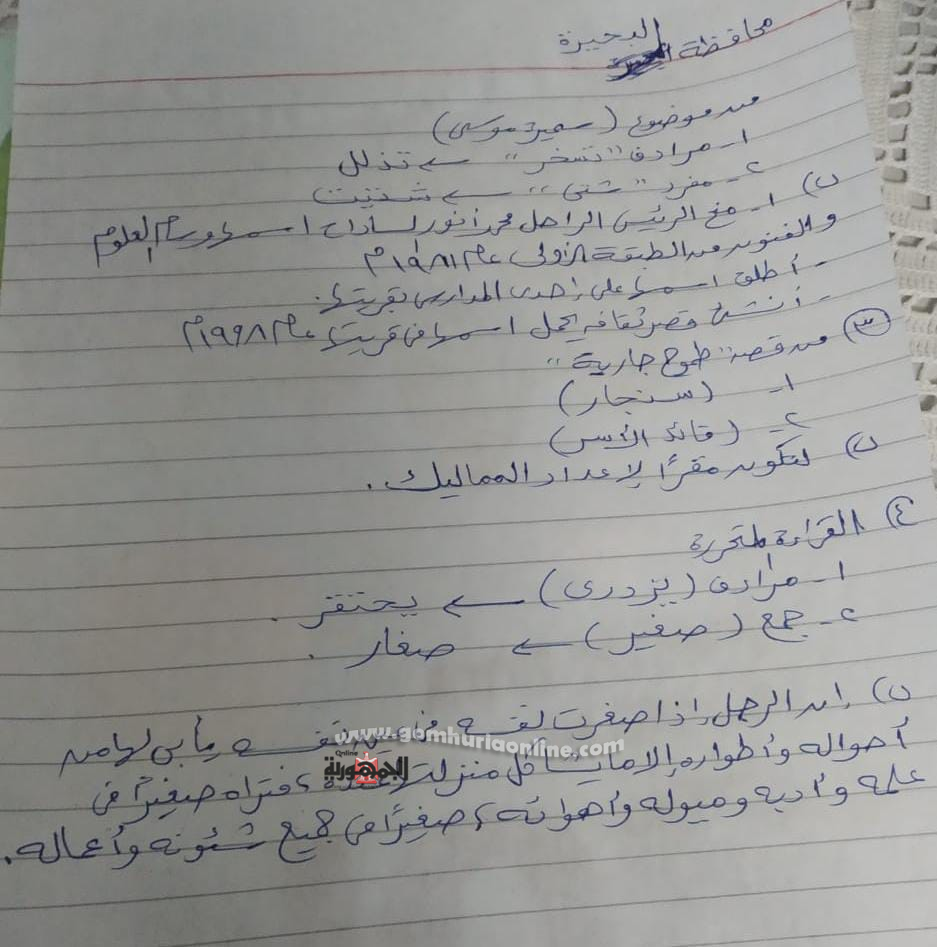 محافظة البحيرة
من موضوع (سميرة موسى)
١- مرادف "تسخر" ← تذلل
٢- مفرد "شتى" ← شتيت
ب) ١- منح الرئيس الراحل محمد أنور السادات اسمها وسام العلوم
والفنون من الطبقة الأولى عام ١٩٨١م
- أطلق اسمها على إحدى المدارس بقريتها.
- أنشئ قصر ثقافة يحمل اسمها فى قريتها عام ١٩٩٨م
٣) من قصة "طموح جارية"
١- (سنجار)
٢- (قائد الأسر)
ب) لتكون مقرًا لإعداد المماليك.
٤) القراءة المتحررة
١- مرادف (يزدرى) ← يحتقر.
٢- جمع (صغير) ← صغار.
ب) إن الرجل إذا صغرت نفسه فى عين نفسه يأبى لها من
أحواله وأطواره إلا ما يشاكل منزلتها عنده، فتراه صغيرًا فى
علمه وأدبه وميوله وأهوائه، صغيرًا فى جميع شئونه وأعماله.
www.gomhuriaonline.com
الجمهورية
Online